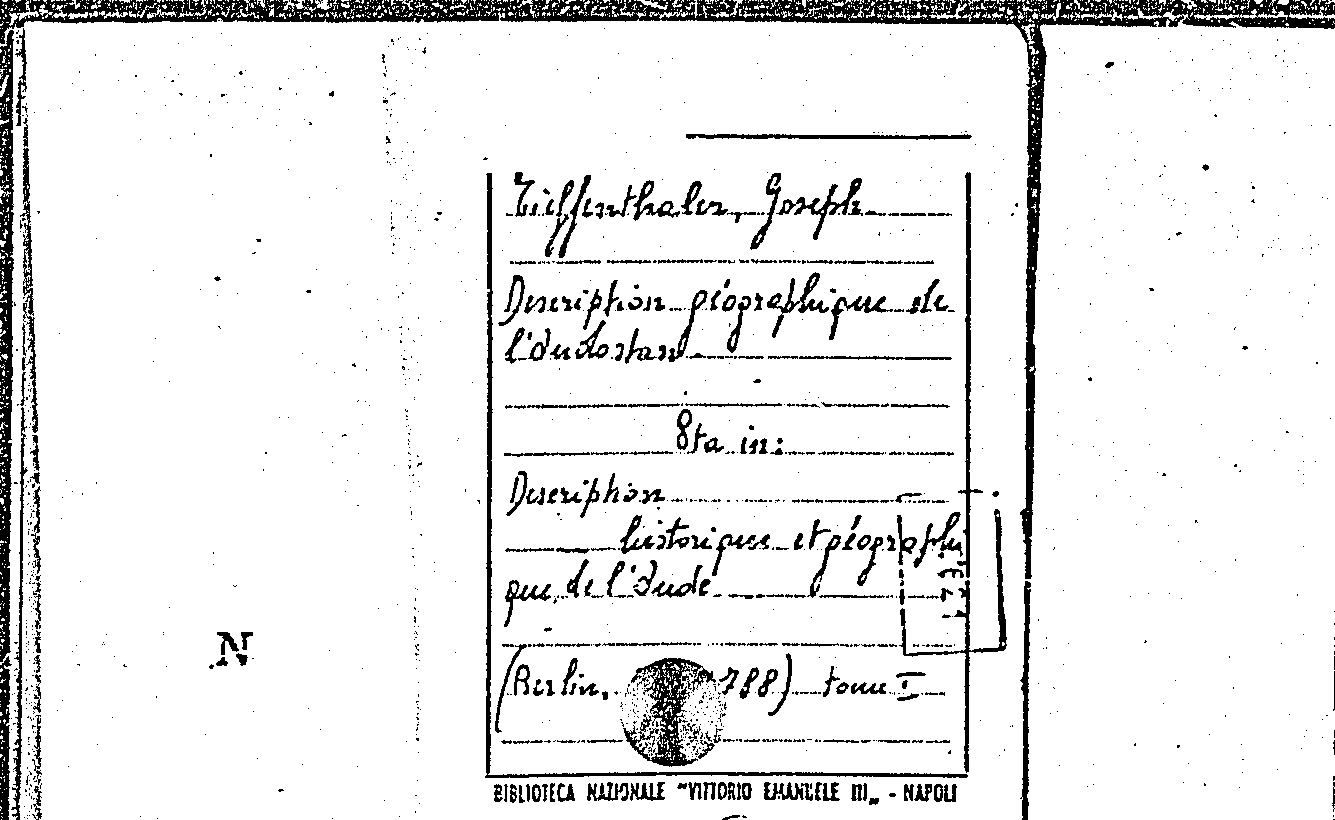 Tieffenthaler, Joseph
Description géographique de
l'Indostan.
Sta in:
Description
historique et géographi
que de l'Inde
(Berlin, 788) tome I
BIBLIOTECA NAZIONALE "VITTORIO EMANUELE III„ - NAPOLI
N